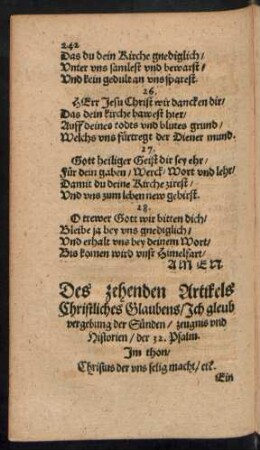 242
Das du dein Kirche gnediglich/
Vnter vns samlest vnd bewarst/
Vnd kein gedult an vns sparest.
26.
HErr Jesu Christ wir dancken dir/
Das dein kirche bawest hier/
Auff deines todts vnd blutes grund/
Welchs vns fürtregt der Diener mund.
27.
Gott heiliger Geist dir sey ehr/
Für dein gaben/ Werck/ Wort vnd lehr/
Damit du deine Kirche zirest/
Vnd vns zum leben new gebirst.
28.
O trewer Gott wir bitten dich/
Bleibe ja bey vns gnediglich/
Vnd erhalt vns bey deinem Wort/
Bis komen wird vnsr Himelfart/
AMEN.
Des zehenden Artikels
Christliches Glaubens/ Jch gleub
vergebung der Sünden/ zeugnis vnd
Historien/ der 32. Psalm.
Im thon/
Christus der vns selig macht/ etc.
Ein